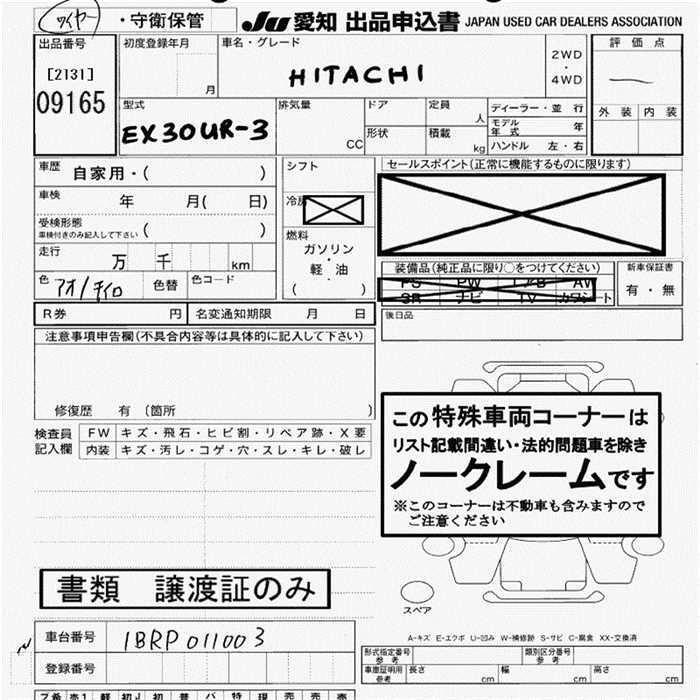 ワイヤー ・守衛保管 JU 愛知 出品申込書 JAPAN USED CAR DEALERS ASSOCIATION
出品番号
[2131]
09165
初度登録年月
月
車名・グレード
HITACHI
2WD
・
4WD
評価点
外装 内装
型式
EX30UR-3
排気量
CC
ドア
形状
定員
人
積載
kg
ディーラー・並 行
モデル年式 年
ハンドル 左・右
車歴 自家用・( )
車検 年 月( 日)
受検形態
車検付きのみ記入して下さい ( )
走行 万 千 km
色 アオ/チイロ 色替 色コード
シフト
冷房
燃料
ガソリン
・
軽・油
( )
セールスポイント(正常に機能するものに限ります)
装備品(純正品に限り○をつけてください)
PS PW エアB AW
SR ナビ TV カワシート
新車保証書
有・無
R券 円 名変通知期限 月 日
後日品
注意事項申告欄(不具合内容等は具体的に記入して下さい)
修復歴 有 〔箇所 〕
検査員記入欄
FW キズ・飛石・ヒビ割・リペア跡・X要
内装 キズ・汚レ・コゲ・穴・スレ・キレ・破レ
この特殊車両コーナーは
リスト記載間違い・法的問題車を除き
ノークレームです
※このコーナーは不動車も含みますので
ご注意ください
書類 譲渡証のみ
スペア
車台番号 1BRP011003
登録番号
A-キズ E-エクボ U-凹み W-補修跡 S-サビ C-腐食 XX-交換済
形式指定番号
参考
類別区分番号
参考
車庫証明用
参考
長さ cm 幅 cm 高さ cm